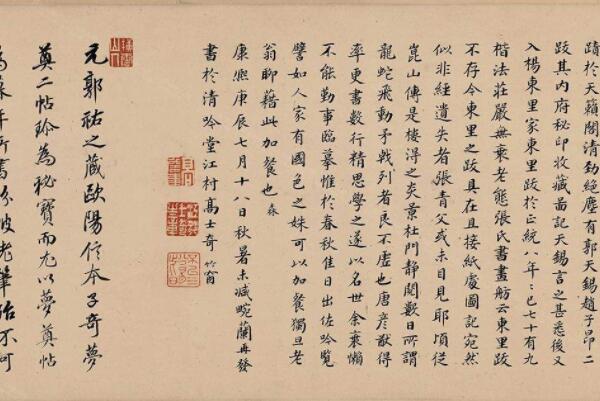 蹟於天籟閣清勁絕塵有郭天錫趙子昂二
跋其内府秘印收藏圖記天錫言之甚悉後又
入楊東里家東里跋於正統八年:已七十有九
楷法莊嚴無衰老態張氏書畫舫云東里跋
不存今東里之跋具在且接紙處圖記宛然
似非經遺失者張青父或未目見耶頃從
崑山傳是樓得之炎景杜門靜閱數日所謂
龍蛇飛動矛戟列者良不虛也唐彥猷得
率更書數行精思學之遂以名世余衰懶
不能勤事臨摹惟於春秋佳日出佐吟覽
譬如人家有國色之姝可以加餐獨旦老
翁聊藉此加餐也
康熙庚辰七月十八日秋暑未減畹蘭再發
書於清吟堂江村高士奇 竹窗
元郭祐之藏歐陽信本子奇夢
奠二帖珍為秘寶而尤以夢奠帖